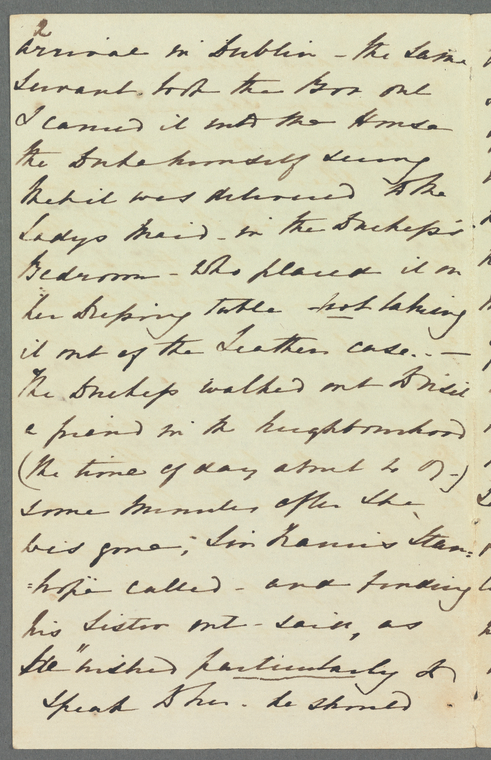 2
arrival in Dublin - the same
Servant took the Box out
& carried it into the House
the Duke himself seeing
that it was delivered to the
Ladys Maid - in the Duchess's
Bedroom - who placed it on
her Dressing table not taking
it out of the Leather case.. -
The Duchess walked out to visit
a friend in the neighbourhood
(the time of day about 4 or 5 -)
some minutes after she
was gone, Sir Francis Stan=
=hope called - and finding
his Sister out - said, as
He "wished particularly to
speak to her - he should